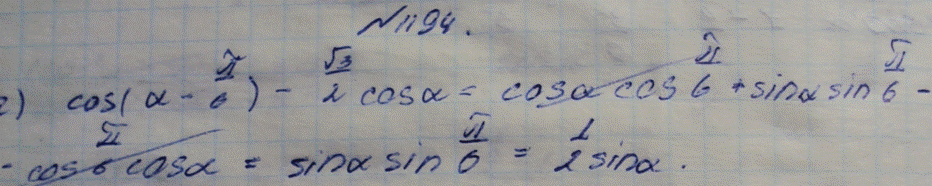 №1194.
2) cos(α - π/6) - √3/2 cosα = cosα cos π/6 + sinα sin π/6 -
- cos π/6 cosα = sinα sin π/6 = 1/2 sinα.